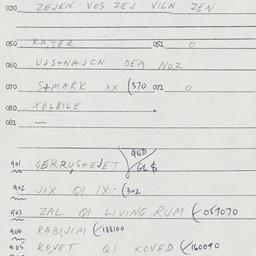 030 ZEJEN VOS ZEJ VILN ZEN
050 KA,TER 051 O
060 UJS+NAJCN DEM NOZ
070 S+MARK XX (370 071 O
080 XOLBILE
081 —
901 GEKRUS+EJET GED/GL$
902 JIX QI IX- (302
903 ZAL QI LIVING RUM (069070
904 RABIJIM (188100
905 KO,VET QI KOVED (160090